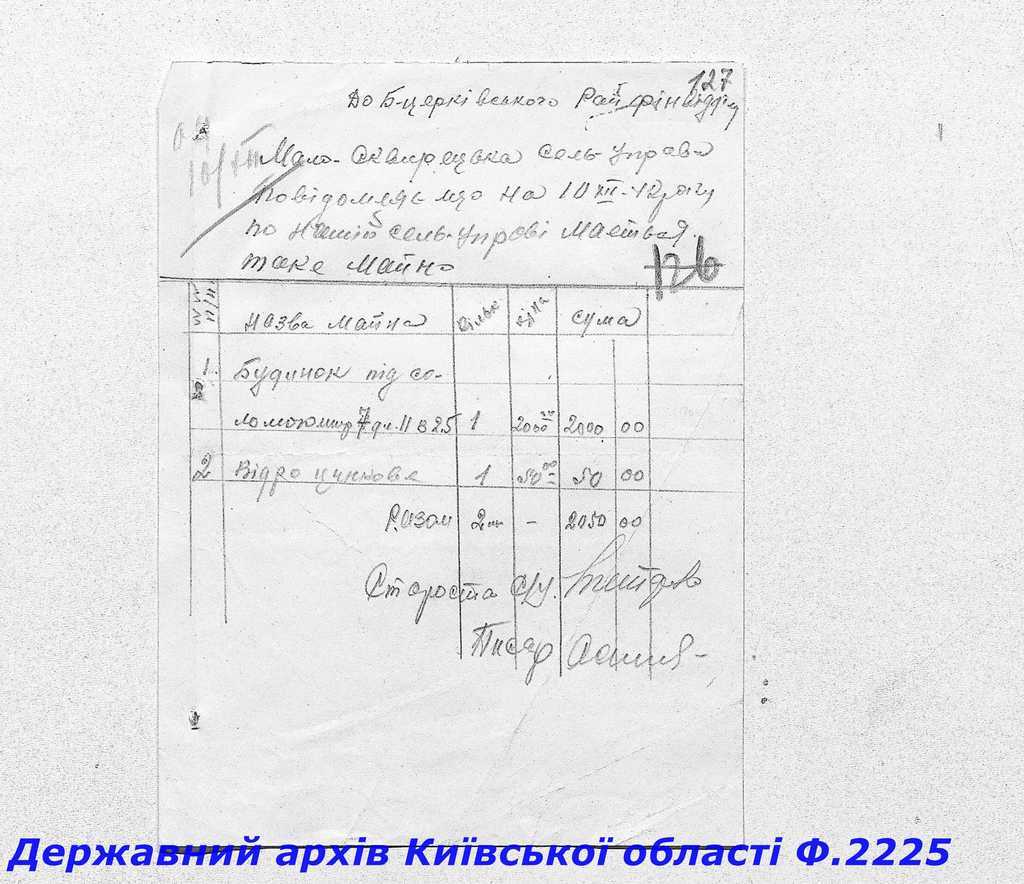 127
До Б-церківського Рай фінвідділу
10/XII
Мало-Сквирецька сель-управа
повідомляє що на 10 XII-42 року
по нашій сель-управі мається
таке майно
126
№№ п/п Назва майна кільк. ціна сума
1. Будинок під со-
ломою 1 2000 00 2000 00
2 Відро цинкове 1 50 00 50 00
Разом 2 - 2050 00
Староста с/у.
Писар
Державний архів Київської області Ф.2225